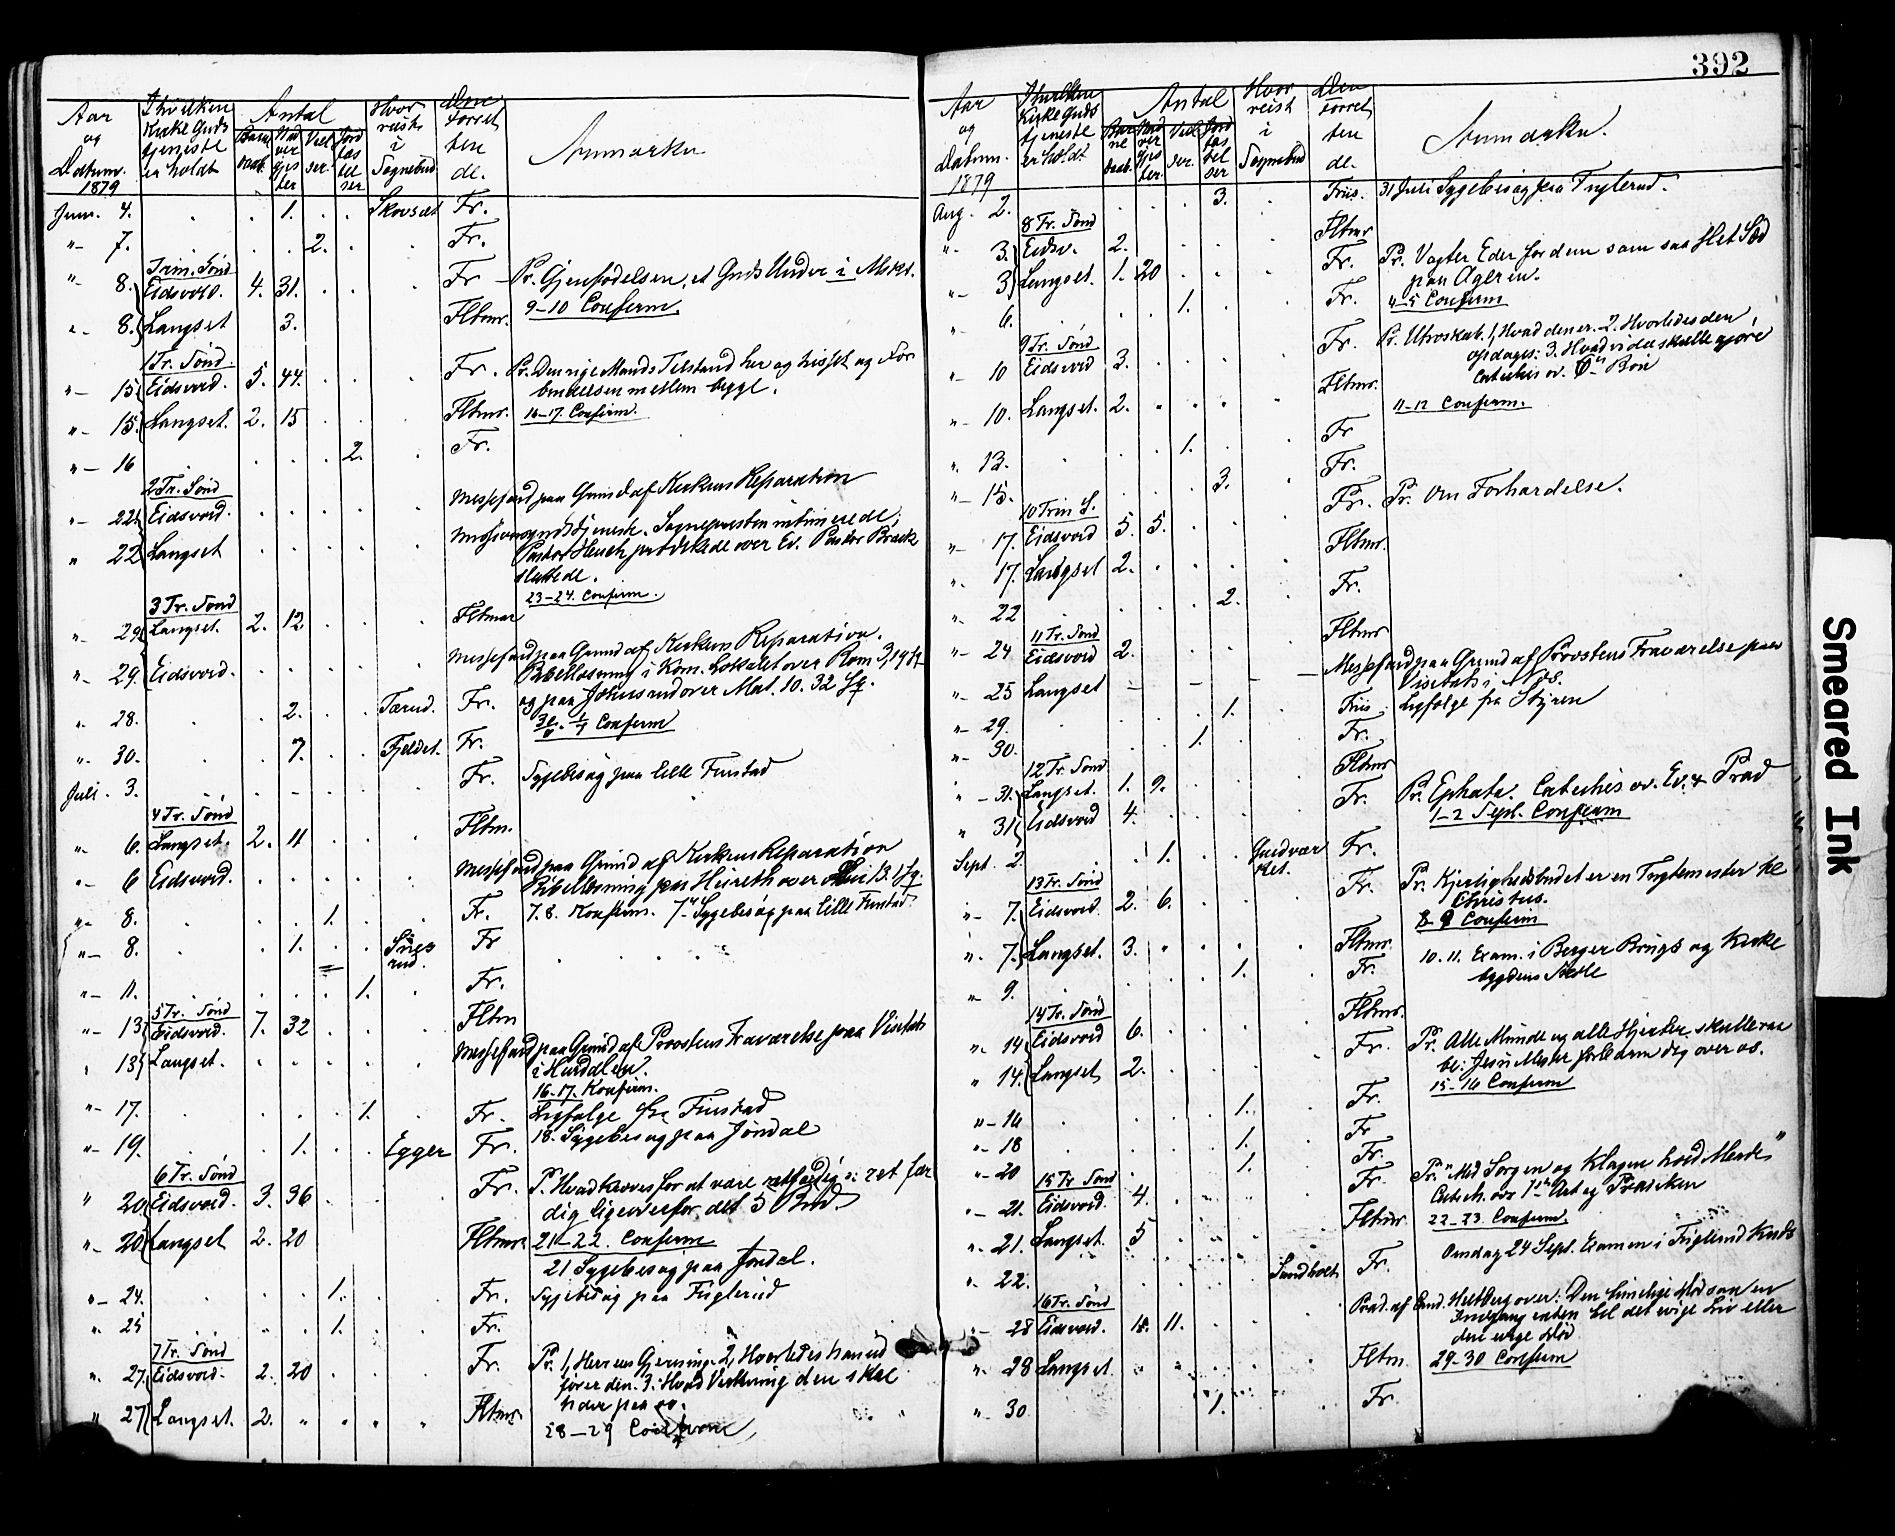 392
Aar og Datum. 1879
I hvilken Kirke Gudstjeneste er holdt
Antal
Hvor reist i Sognebud
Den forrettende.
Anmærkn
Juni 4. . . 1. . . Skovset Fr.
"- 7. . . . 2. . . Fr.
Trin. Sønd
"- 8. Eidsvold. 4. 31. . . . Fr - Pr. Gjenfødelsen, et Guds Under i Msk.
9-10 Conferm.
"- 8. Langset 3. Flbmr.
1 Tr. Sønd.
"- 15. Eidsvold. 5. 44. . . . Fr. Pr. Den rige Mands Tilstand her og hisset og For
bindelsen mellem begge.
"- 15. Langset. 2. 15 . . . Flbmr. 16-17. Confirm.
"- 16 . . . . 2. . Fr.
2 Tr. Sønd
"- 22. Eidsvold. . . . . . Messefald paa Grund af Kirkens Reparation
" 22. Langset . . . . . Missionsgudstjeneste. Sognepresten intimerede,
Pastor Heuch prædikede over Ev. Pastor
sluttede.
23-24. Confirm.
3 Tr. Sønd
"- 29. Langset. 2. 12. . . . Flbmr
"- 29. Eidsvold. . . . . . Messefald paa Grund af Kirkens Reparation.
Bibellæsning i Kom. Lokalet over Rom 3,19 ff
og paa over Mat. 10. 32 fg.
"- 28. . . 2. . . Tærud. Fr.
Conferm
"- 30. . . 7. . . Fjeldet. Fr.
Juli 3. . . - . . Fr. Sygebesøg paa lille Finstad
4 Tr. Sønd
"- 6. Langset. 2. 11 . . . Flbm.
"- 6 Eidsvold. . . . . . Messefald paa Grund af Kirkens Reparation
Bibellæsning paa over 13. 1 fg.
"- 8. . . . 1. . . Fr. 7. 8. Konfirm. 7 Sygebesøg paa lille Finstad
"- 8. . . 1. . . Fr
"- 11. . . . . 1. . Fr.
5 Tr. Sønd
"- 13. Eidsvold. 7. 32 . . . Flbm
" 13. Langset. . . . . . Messefald paa Grund af Provstens Fraværelse paa Visitats
i Hurdalen.
16-17. Konfirm.
"- 17. . . . . 1. . Fr. Ligfølge fra Finstad
18. Sygebesøg paa Jøndal
"- 19. . . 1. . . Egger Fr.
6 Tr. Sønd
" 20. Eidsvold. 3. 36 . . . Fr. P. Hvad kræves for at være retfærdig ɔ: ret fær
dig ligeoverfor det 5 Bud.
"- 20. Langset 2. 20 Flbmr. 21-22. Conferm
21 Sygebesøg paa Jøndal.
"- 24. . . . 1. . . Fr. Sygebesøg paa Fuglerud
". 25 . . . 1. . . Fr.
7 Tr. Sønd
". 27. Eidsvold. 2. 20 . . . Fr. Pr. 1, Herrens Gjerning. 2, Hvorledes han ud
fører den. 3. Hvad Virkning den skal
have paa os.
" 27. Langset. 2. " " " " Flbmr. 28-29 Confirm
Aar og Datum. 1879
I hvilken Kirke Gudstjeneste er holdt
Antal
Hvor reist i Sognebud
Den forrettende.
Anmærkn.
Aug. 2. . . . 3. . Friis. 31 Juli Sygebesøg paa Fuglerud.
8 Tr. Sønd
"- 3. Eidsv. 2. . . . . Flbmr
"- 3. Langset. 1. 20 . . . Fr. Pr. Vogter Eder for dem som saa slet Sæd
paa Ageren.
4-5 Conferm
"- 6. . . . 1. . Fr.
9 Tr. Sønd
"- 10 Eidsvold 3. . . . Fr. Pr. Utroskab. 1, Hvad den er. 2. Hvorledes den
opdages: 3. Hvad vi da skulle gjøre
Catechis ov. 6 Bøn
"- 10. Langset. 2. . . . . Flbmr. 11-12 Conferm.
". 13. . . . 1. . Fr
"- 15. . . . . 3. . Fr.
10 Trin S.
"- 17. Eidsvold 5. 5. . . . Fr. Pr. Om Forhærdelse.
". 17. Langset 2. . . . . Flbmr.
". 22 . . . 2. . Fr.
11 Tr. Sønd
"- 24 Eidsvold 2. . . . Flbmr
"- 25 Langset - - - - - Messefald paa Grund af Provstens Fraværelse paa
Visitats i Nes.
"- 29. . . . . 1. . Friis Ligfølge fra Styren
"- 30. . . . 1. . . Fr.
12 Tr. Sønd
"- 31. Langset. 1. 9. . . . Flbmr
" 31. Eidsvold 4. . . . . Fr. Pr. Ephata. Catechis ov. Ev. & Præd
1-2 Sept. Conferm
Sept. 2. . . 1. . Fr.
13 Tr. Sønd
"- 7. Eidsvold. 2. 6. . . . Fr. Pr. Kjærlighedsbudet er en Tugtemester til
Christus.
8-9 Conferm
". 7. Langset. 3. " . . . Flbmr. 10. 11. Exam. i Berger Brugs og Kirke
bygdens Skole
"- 9. . . . . 1. . Fr.
14 Tr. Sønd
"- 14. Eidsvold 6. . . . . Flbmr.
" 14. Langset 2. . . . . Fr. Pr. Alle Munde og alle Hjerter skulle væ
be: Jesu Mester forbarm dig over os.
15-16 Conferm
"- 16 . . . . 1. . Fr.
"- 18 . . . . 1. . Fr
"- 20 . . . . 1. . Fr.
15 Tr Sønd
"- 21. Eidsvold. 4. . . . . Fr. Pr. "Med Sorgen og Klagen hold Maade"
Catech. ov. 1ste Art og Prædiken
". 21. Langset. 5 . . . . Flbmr. 22-23. Conferm.
Onsdag 24 Sept. Examen i Fuglerud Kreds
". 22. . . . . . Sundholt Fr.
16 Tr. Sønd
"- 28 Eidsvold. 11. . . . Præd. af Cand. Hertzberg over: Den timelige Død som en
Indgang enten til det evige Liv eller
den evige Død
". 28 Langset. " . . . Flbm. 29-30 Conferm
"- 30 . . . 1. . Fr.
Smeared Ink